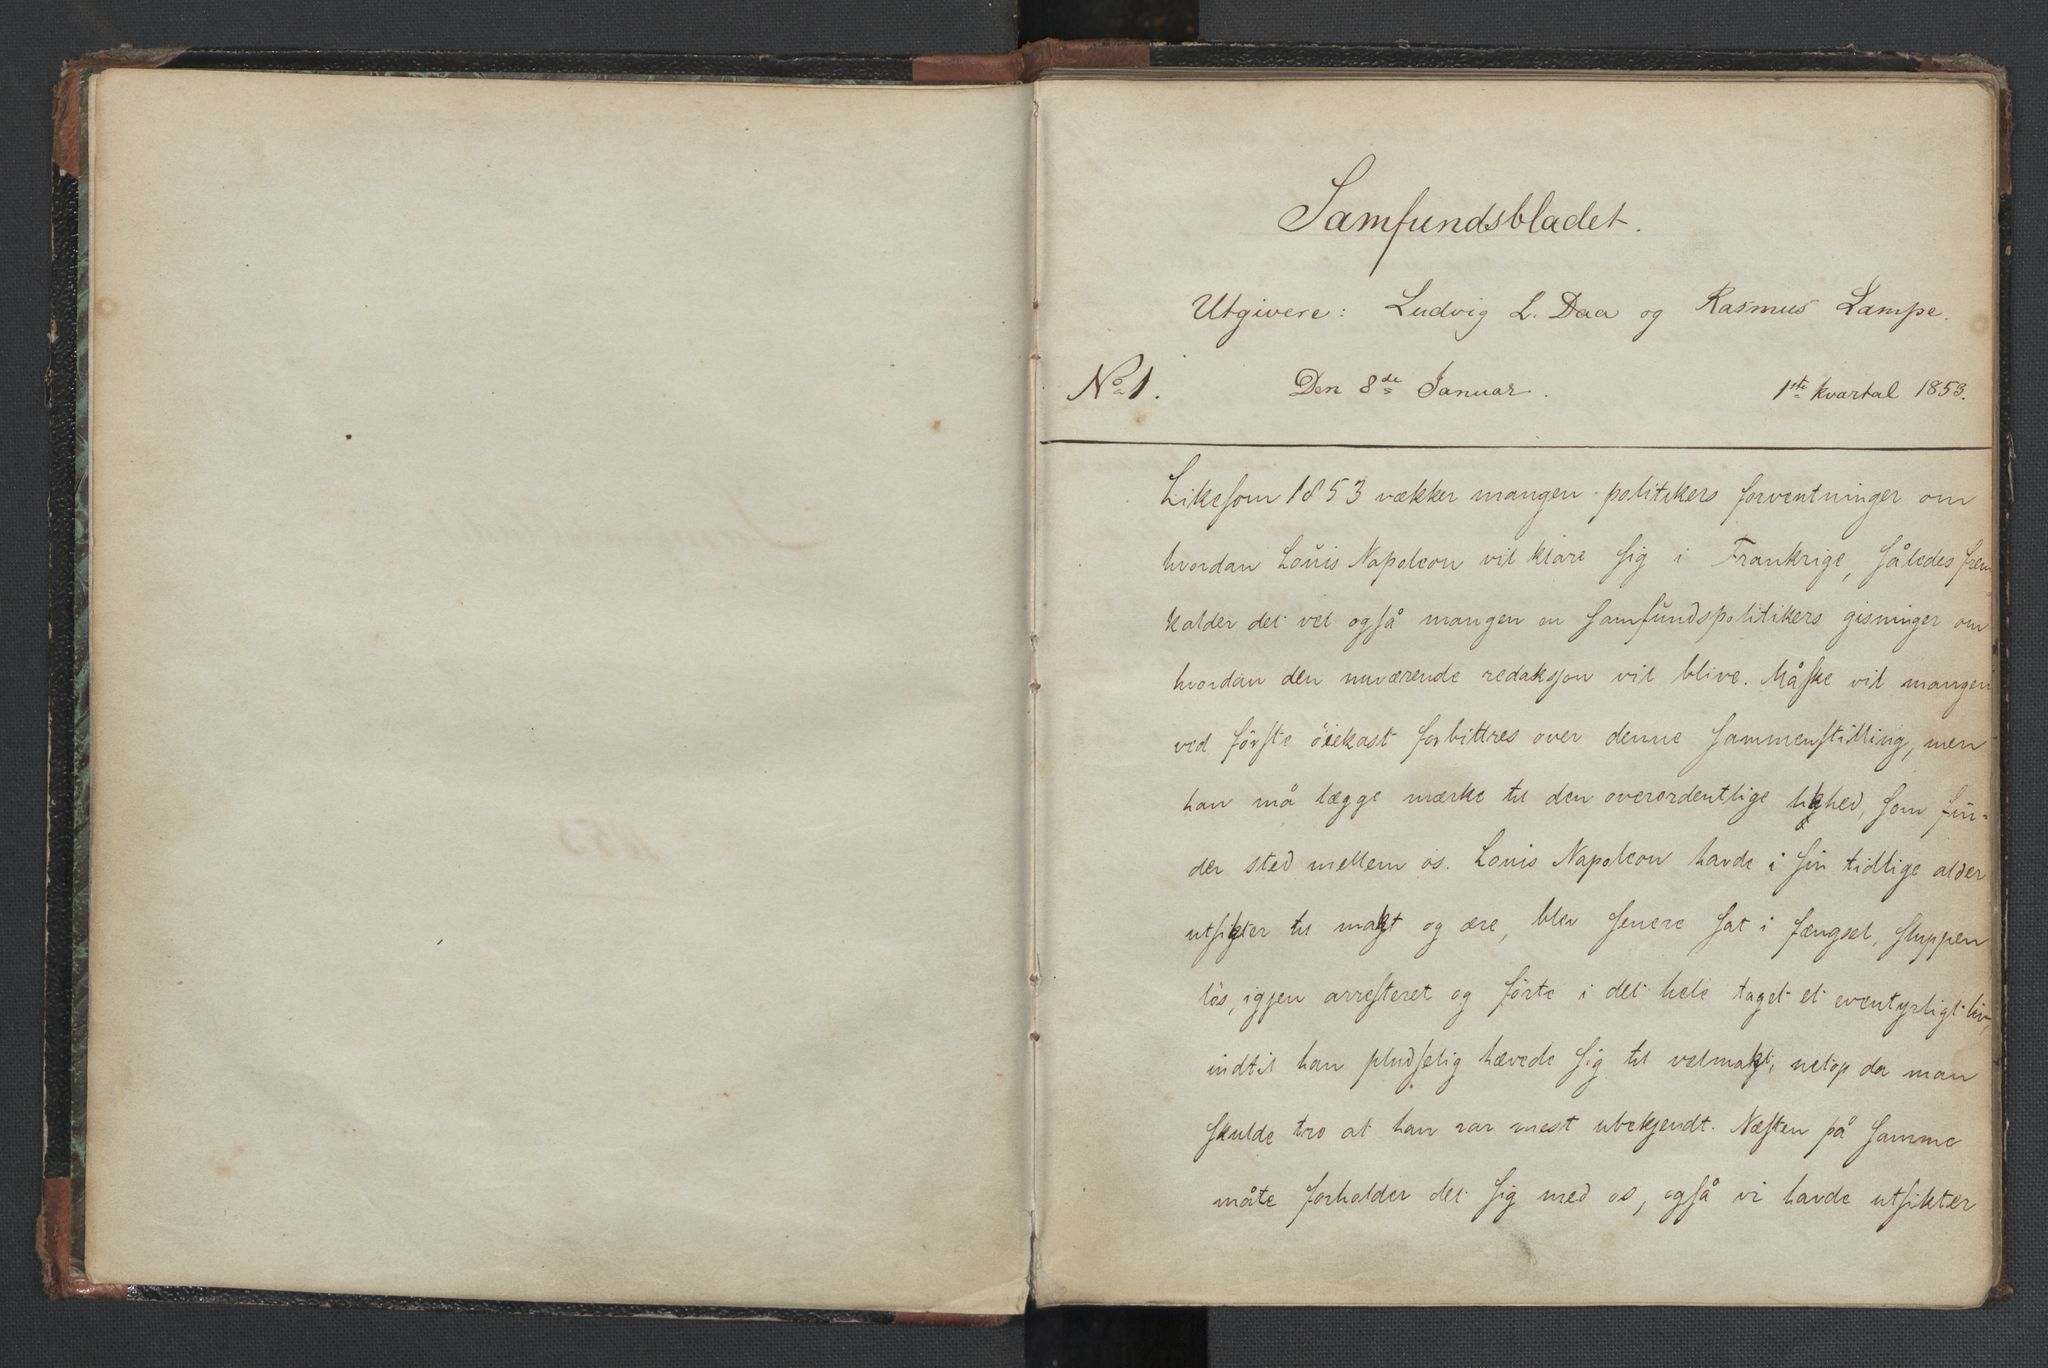 Samfundsbladet.
Utgivere: Ludvig L. Daa og Rasmus Lampe.
No 1. Den 8de Januar. 1ste kvartal 1853.
Likesom 1853 vækker mangen politikers forventninger om
hvordan Louis Napoleon vil klare sig i Frankrige, således frem
kalder det vel også mangen en samfundspolitikers gisninger om
hvordan den nuværende redaksjon vil blive. Måske vil mangen
ved første öiekast forbittres over denne sammenstilling, men
han må lægge mærke til den overordentlige likhed, som fin-
der sted mellem os. Louis Napoleon havde i sin tidlige alder
utsikter til makt og ære, blev senere sat i fængsel, sluppen
lös, igjen arresteret og förte i det hele taget et eventyrligt liv,
indtil han pludselig hævede sig til velmakt, netop da man
skulde tro at han var mest ubekjendt. Næsten på samme
måte forholder det sig med os, også vi havde utsikter
1853